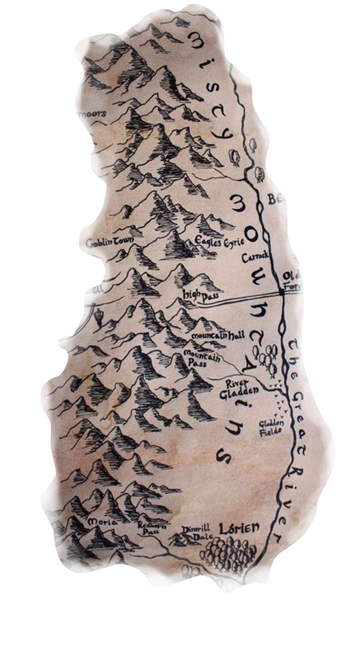 Misty
moors
Mountains
Goblin Town
Eagles Eyrie
Carrock
Old
High Pass
mountain hall
mountain
Pass
River
Gladden
Gladden
Fields
the Great River
Moria
Pass
Dimrill
Dale
Lórien